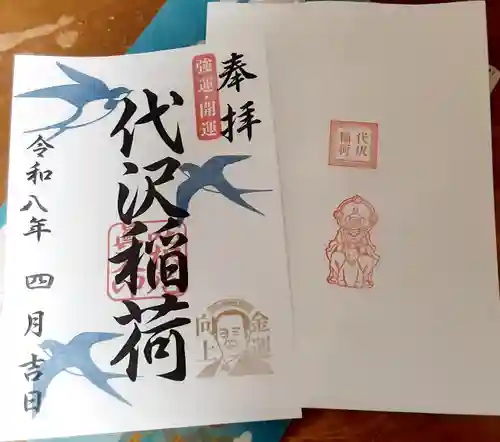 奉拝
強運・開運
代沢稲荷
金運
向上
令和八年 四月吉日
代沢
稲荷